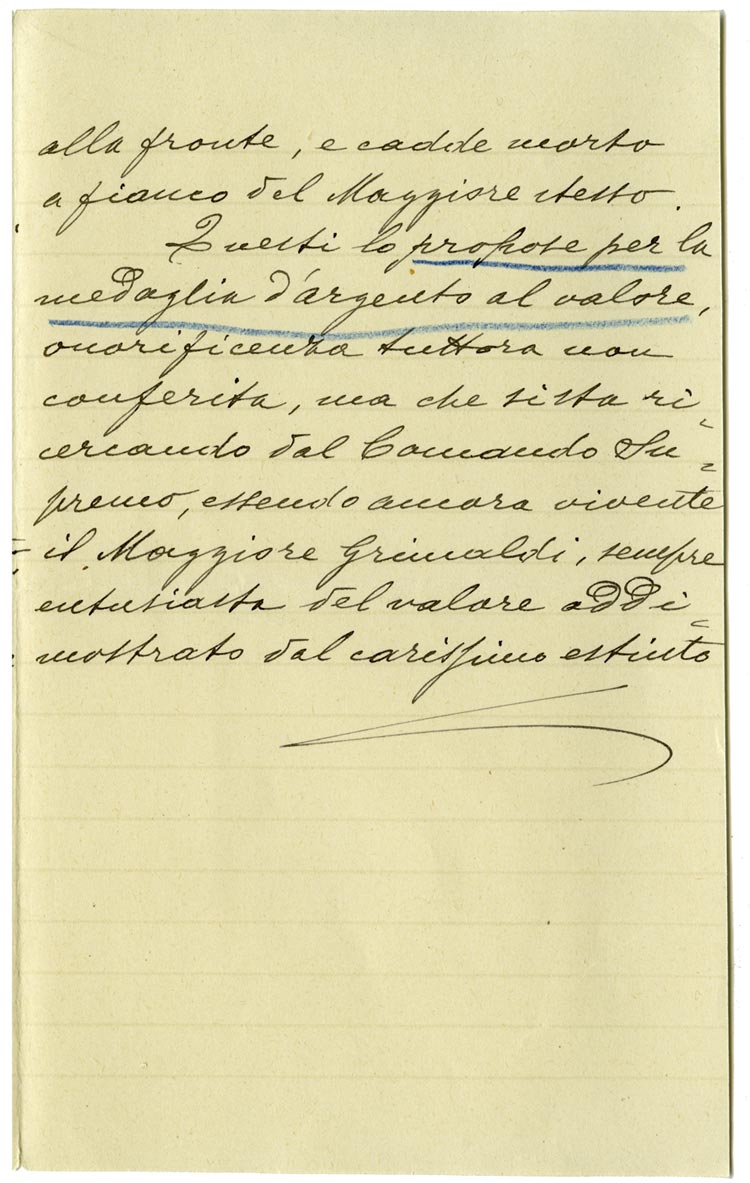 alla fronte, e cadde morto
a fianco del Maggiore stesso.
Questi lo propose per la
medaglia d'argento al valore,
onorificenza tuttora non
conferita, ma che si sta ri=
cercando dal Comando Su=
premo, essendo ancora vivente
il Maggiore Grimaldi, sempre
entusiasta del valore addi=
mostrato dal carissimo estinto